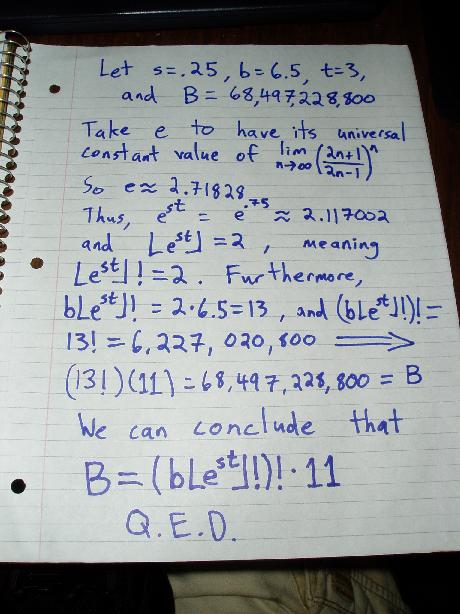 Let s=.25, b=6.5, t=3,
and B = 68,497,228,800
Take e to have its universal
constant value of lim n→∞ ((2n+1)/(2n-1))^n
So e≈ 2.71828
Thus, e^st = e^.75 ≈ 2.117002
and ⌊e^st⌋ = 2, meaning
⌊e^st⌋! = 2. Furthermore,
b⌊e^st⌋! = 2·6.5=13, and (b⌊e^st⌋!)! =
13! = 6,227,020,800 ⟹
(13!)(11) = 68,497,228,800 = B
We can conclude that
B = (b⌊e^st⌋!)!·11
Q.E.D.